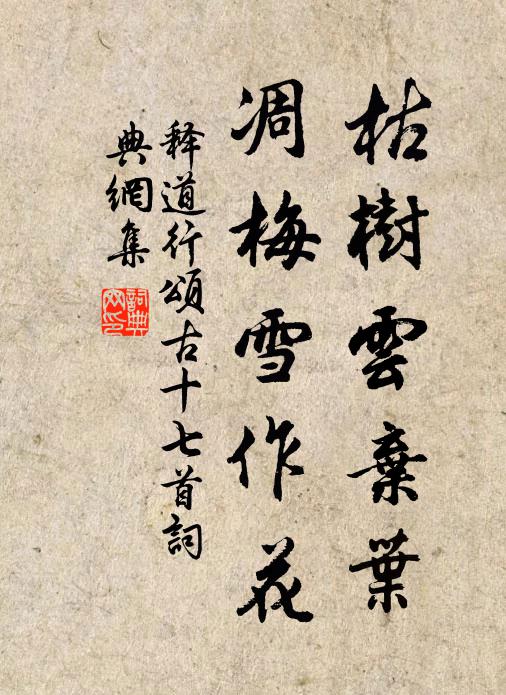 枯樹雲棄葉
凋梅雪作花
释道行頌古十七首詞
典網集
詞典
网印